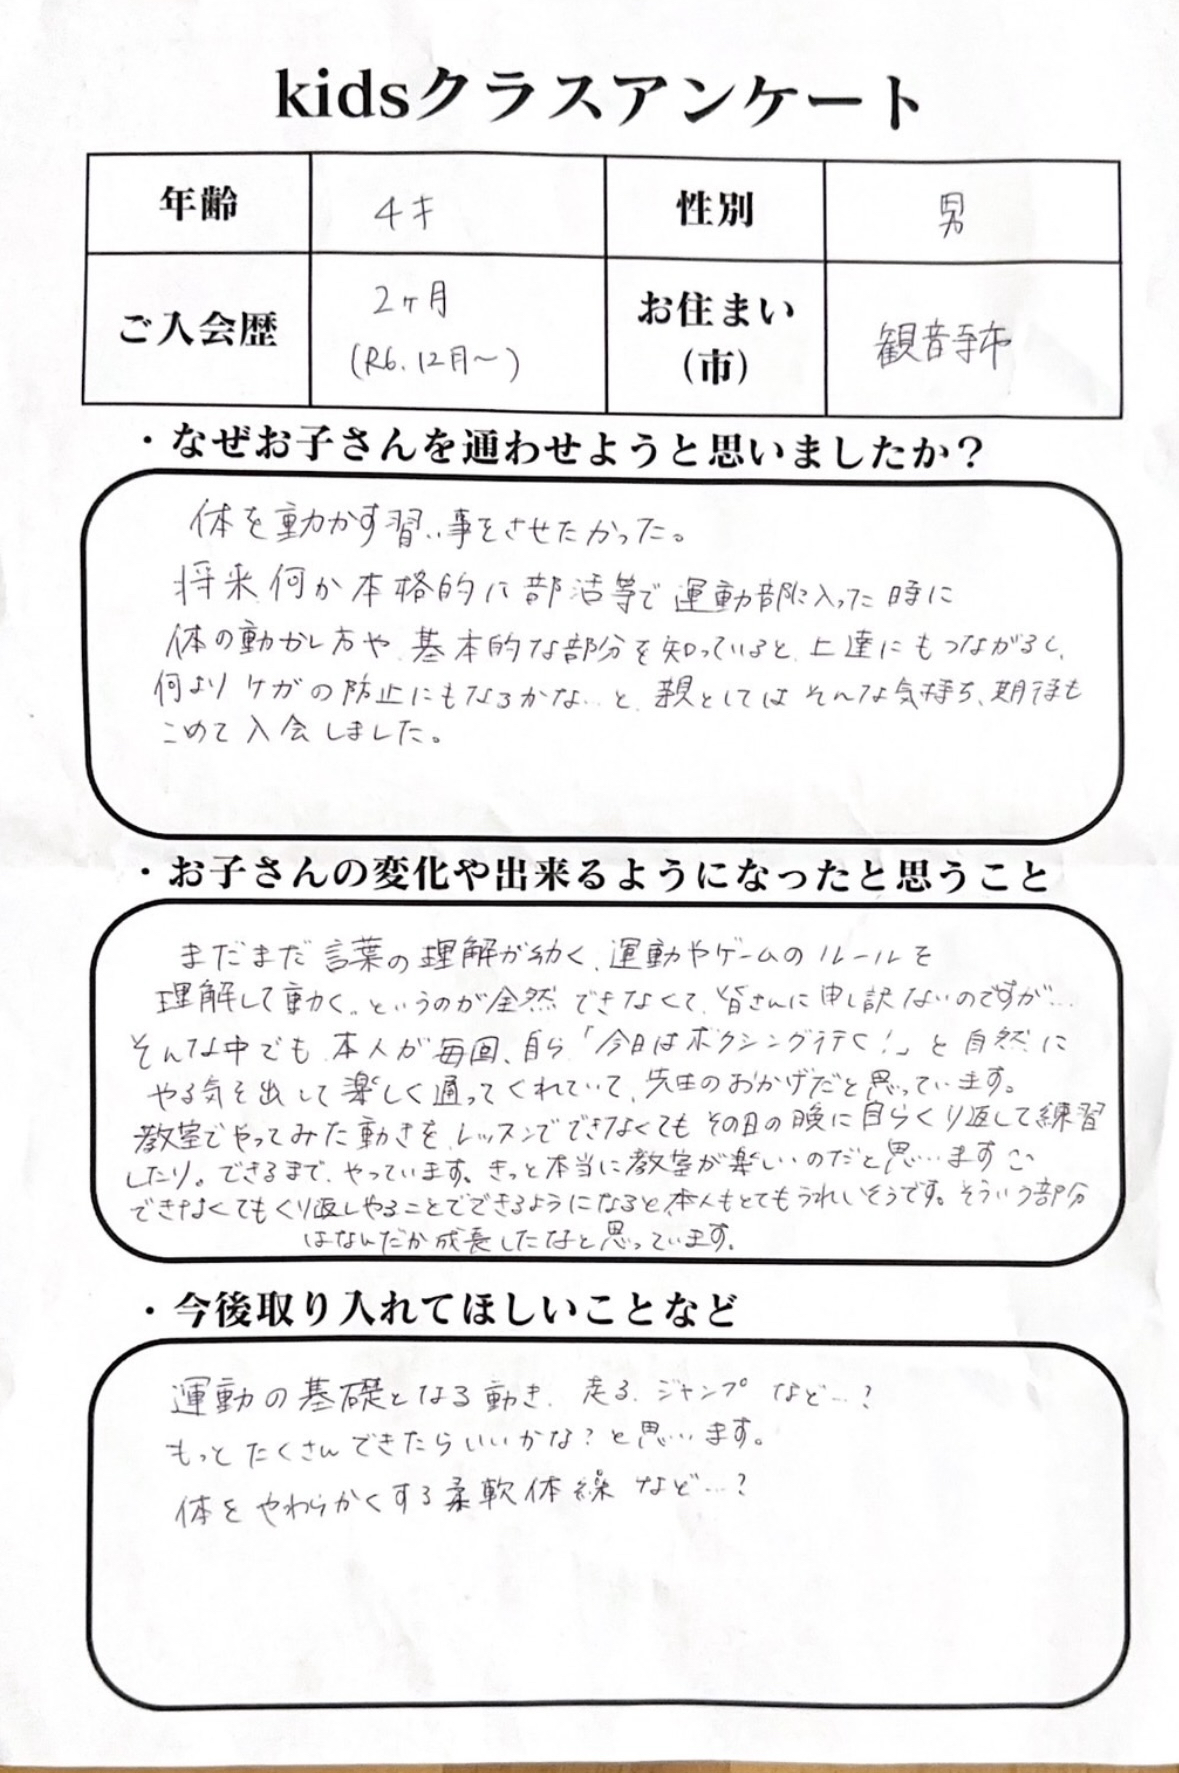 kidsクラスアンケート
年齢 4才 性別 男
ご入会歴 2ヶ月 (R6.12月〜) お住まい(市) 観音寺市
・なぜお子さんを通わせようと思いましたか？
体を動かす習い事をさせたかった。
将来何か本格的に部活等で運動部に入った時に
体の動かし方や、基本的な部分を知っていると、上達にもつながるし、
何よりケガの防止にもなるかな…と、親としてはそんな気持ち、期待も
こめて入会しました。
・お子さんの変化や出来るようになったと思うこと
まだまだ言葉の理解が幼く、運動やゲームのルールを
理解して動く。というのが全然できなくて、皆さんに申し訳ないのですが…
そんな中でも、本人が毎回、自ら「今日はボクシング行く！」と自然に
やる気を出して楽しく通ってくれていて、先生のおかげだと思っています。
教室でやってみた動きを、レッスンでできなくてもその日の晩に自らくり返して練習
したり。できるまで、やっています。きっと本当に教室が楽しいのだと思います
できなくてもくり返しやることでできるようになると、本人もとてもうれしそうです。そういう部分
はなんだか成長したなと思っています。
・今後取り入れてほしいことなど
運動の基礎となる動き、走る、ジャンプ など…？
もっとたくさんできたらいいかな？と思います。
体をやわらかくする柔軟体操 など…？